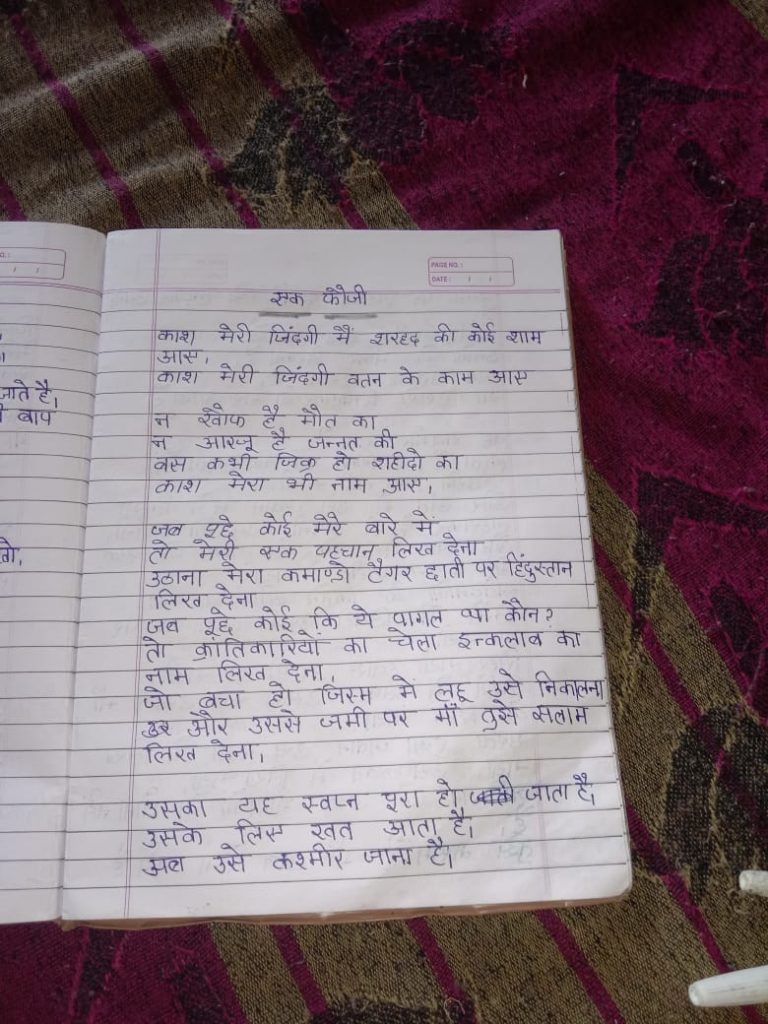 NO. :
जाते है,
बाप
PAGE NO. :
DATE : / /
एक फौजी
काश मेरी जिंदगी में शरहद की कोई शाम
आए,
काश मेरी जिंदगी वतन के काम आए
न खौफ है मौत का
न आरजू है जन्नत की
बस कभी जिक्र हो शहीदो का
काश मेरा भी नाम आए,
जब पूछे कोई मेरे बारे में
तो मेरी एक पहचान लिख देना
उठाना मेरा कमाण्डो टैगर छाती पर हिंदुस्तान
लिख देना
जब पूछे कोई कि ये पागल था कौन?
तो क्रांतिकारियों का चेला इन्कलाब का
नाम लिख देना,
जो बचा हो जिस्म में लहू उसे निकालना
और उससे जमी पर माँ तुझे सलाम
लिख देना,
उसका यह स्वप्न पूरा हो जाता है,
उसके लिए खत आता है,
अब उसे कश्मीर जाना है,